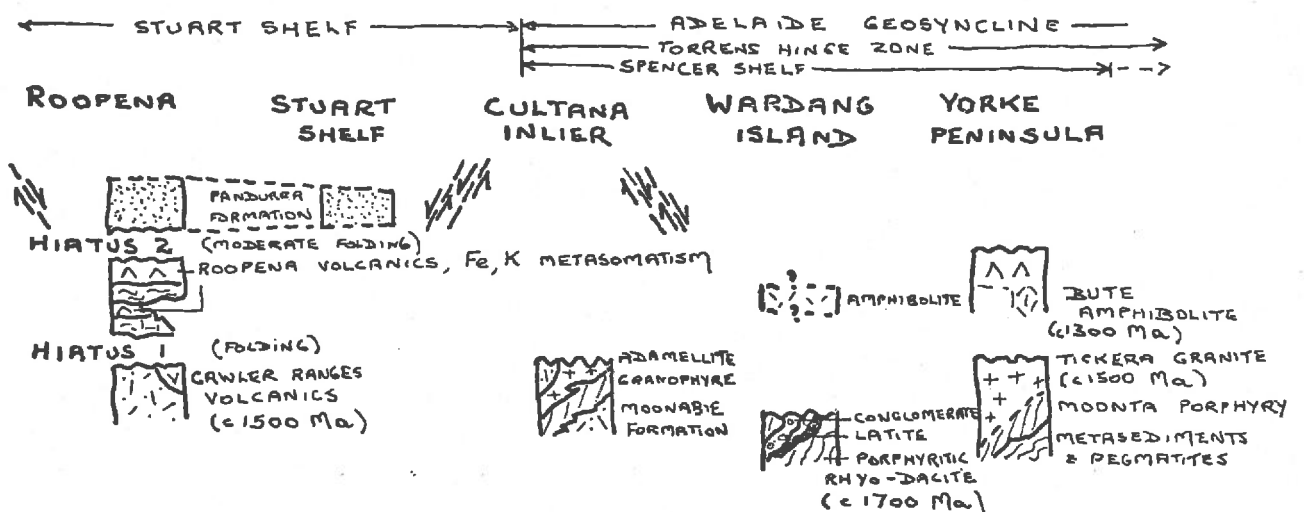 STUART SHELF
ADELAIDE GEOSYNCLINE
TORRENS HINGE ZONE
SPENCER SHELF
ROOPENA
STUART
SHELF
CULTANA
INLIER
WARDANG
ISLAND
YORKE
PENINSULA
PANDURRA
FORMATION
HIATUS 2 (MODERATE FOLDING)
ROOPENA VOLCANICS, Fe, K METASOMATISM
? ?
AMPHIBOLITE
BUTE
AMPHIBOLITE
(c1300 Ma)
HIATUS 1 (FOLDING)
GAWLER RANGES
VOLCANICS
(c1500 Ma)
ADAMELLITE
GRANOPHYRE
MOONABIE
FORMATION
CONGLOMERATE
LATITE
PORPHYRITIC
RHYO-DACITE
(c 1700 Ma)
TICKERA GRANITE
(c1500 Ma)
MOONTA PORPHYRY
METASEDIMENTS
& PEGMATITES